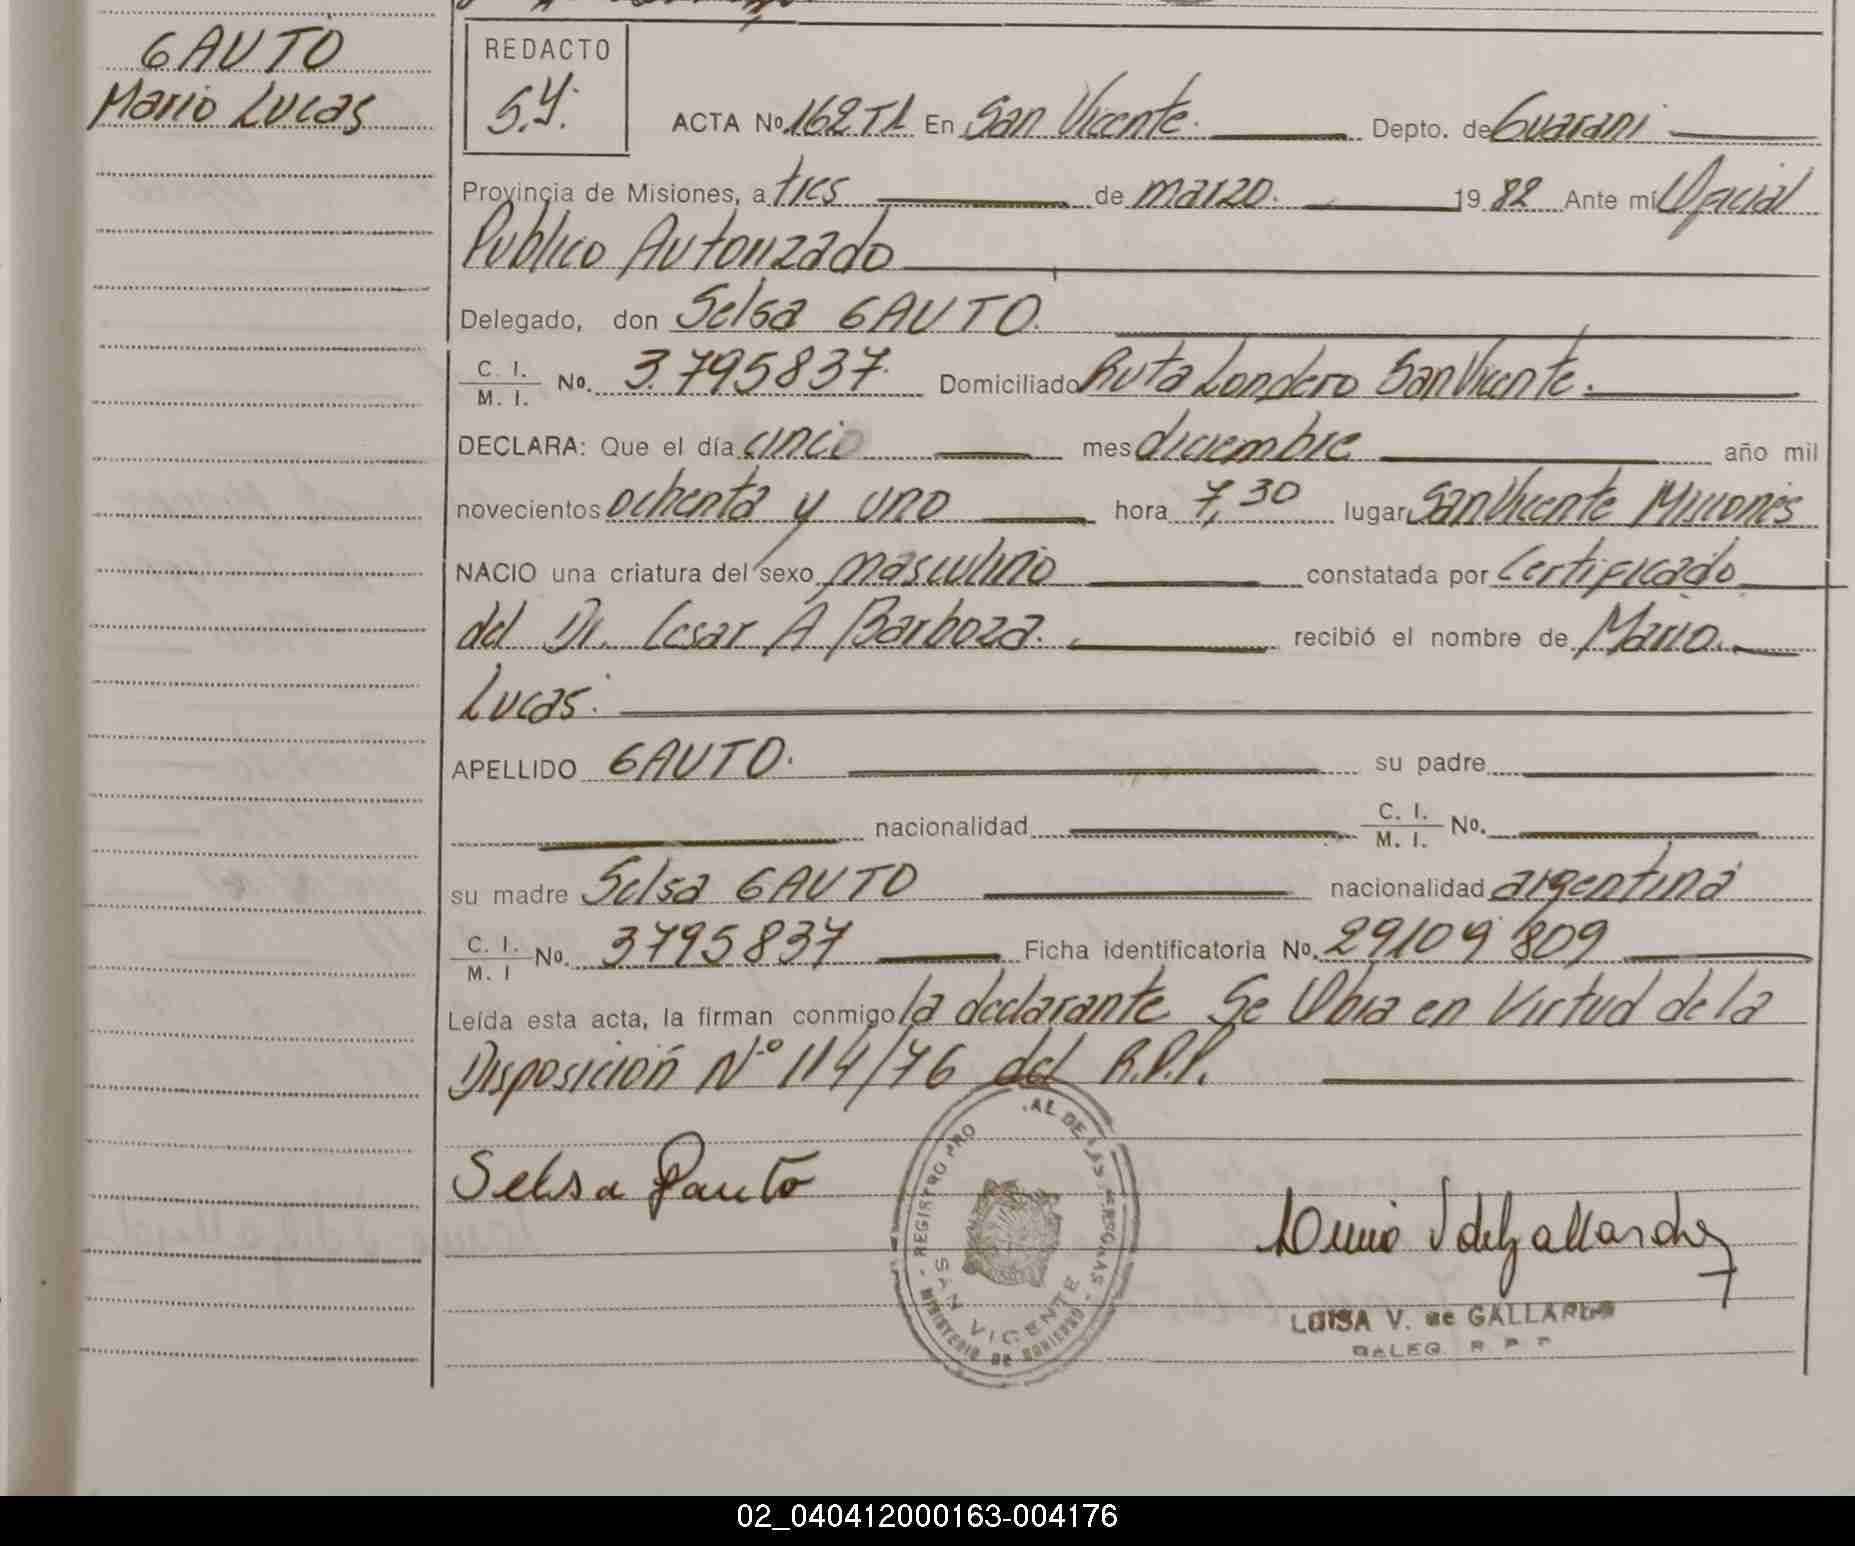 GAUTO
Mario Lucas
REDACTO
S.Y.
ACTA No. 162 T1 En San Vicente. Depto. de Guarani
Provincia de Misiones, a tres de marzo. 19 82 Ante mí Oficial
Publico Autorizado
Delegado, don Selsa GAUTO.
C. I. / M. I. No. 3.795837. Domiciliado Ruta Londero San Vicente.
DECLARA: Que el día cinco mes diciembre año mil
novecientos ochenta y uno hora 7,30 lugar San Vicente Misiones
NACIO una criatura del sexo masculino constatada por Certificado
del Dr. Cesar A Barboza. recibió el nombre de Mario
Lucas.
APELLIDO GAUTO. su padre
nacionalidad C. I. / M. I. No.
su madre Selsa GAUTO nacionalidad argentina
C. I. / M. I No. 3795837 Ficha identificatoria No. 29109 809
Leída esta acta, la firman conmigo la declarante Se Obra en Virtud de la
Disposición Nº 114/76 del R.P.P.
Selsa Gauto
REGISTRO PRO AL DE LAS PERSONAS
SAN VICENTE
MINISTERIO DE GOBIERNO
LUISA V. de GALLARDO
DALEG. R. P. P
02_040412000163-004176